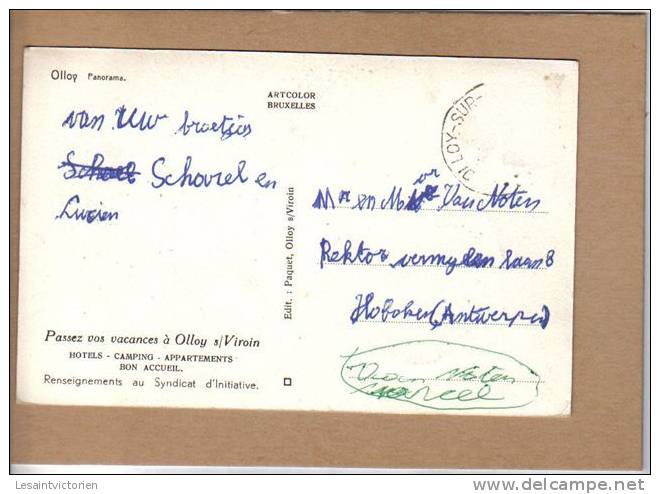 Olloy Panorama.
ARTCOLOR
BRUXELLES
van UW broetjes
Scharel en
Lucien
OLLOY-SUR-
Mr en Van Noten
Rektor vermeylen laan 8
Hoboken (Antwerpen)
Edit. : Paquet, Olloy s/Viroin
Passez vos vacances à Olloy s/Viroin
HOTELS - CAMPING - APPARTEMENTS
BON ACCUEIL.
Renseignements au Syndicat d'Initiative.
Van Noten
Marcel
Lesaintvictorien
delcampe.net